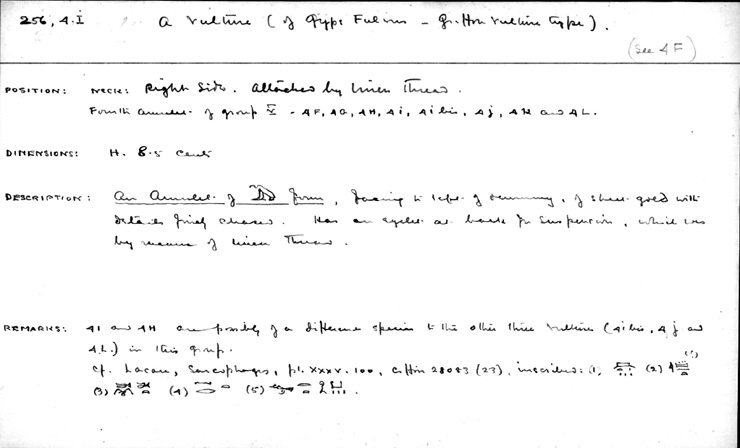 256, 4.I
A vulture (of Gyps Fulvus - Griffon vulture type).
(See 4F)
POSITION: NECK: Right Side. Attached by linen Thread.
Fourth amulet of group V - 4F, 4G, 4H, 4i, 4i bis, 4j, 4K and 4L.
DIMENSIONS: H. 8.5 cents
DESCRIPTION: An Amulet of form, facing to left of mummy, of sheet gold with
details finely chased. Has an eyelet at back for suspension, which was
by means of linen Thread.
REMARKS: 4I and 4H are possibly of a different species to the other three vultures (4i bis, 4j and
4L.) in this group.
cf. Lacau, Sarcophages, pl. XXXV. 100, Coffin 28083 (23), inscribed: (1) (2)
(3) (4) (5)